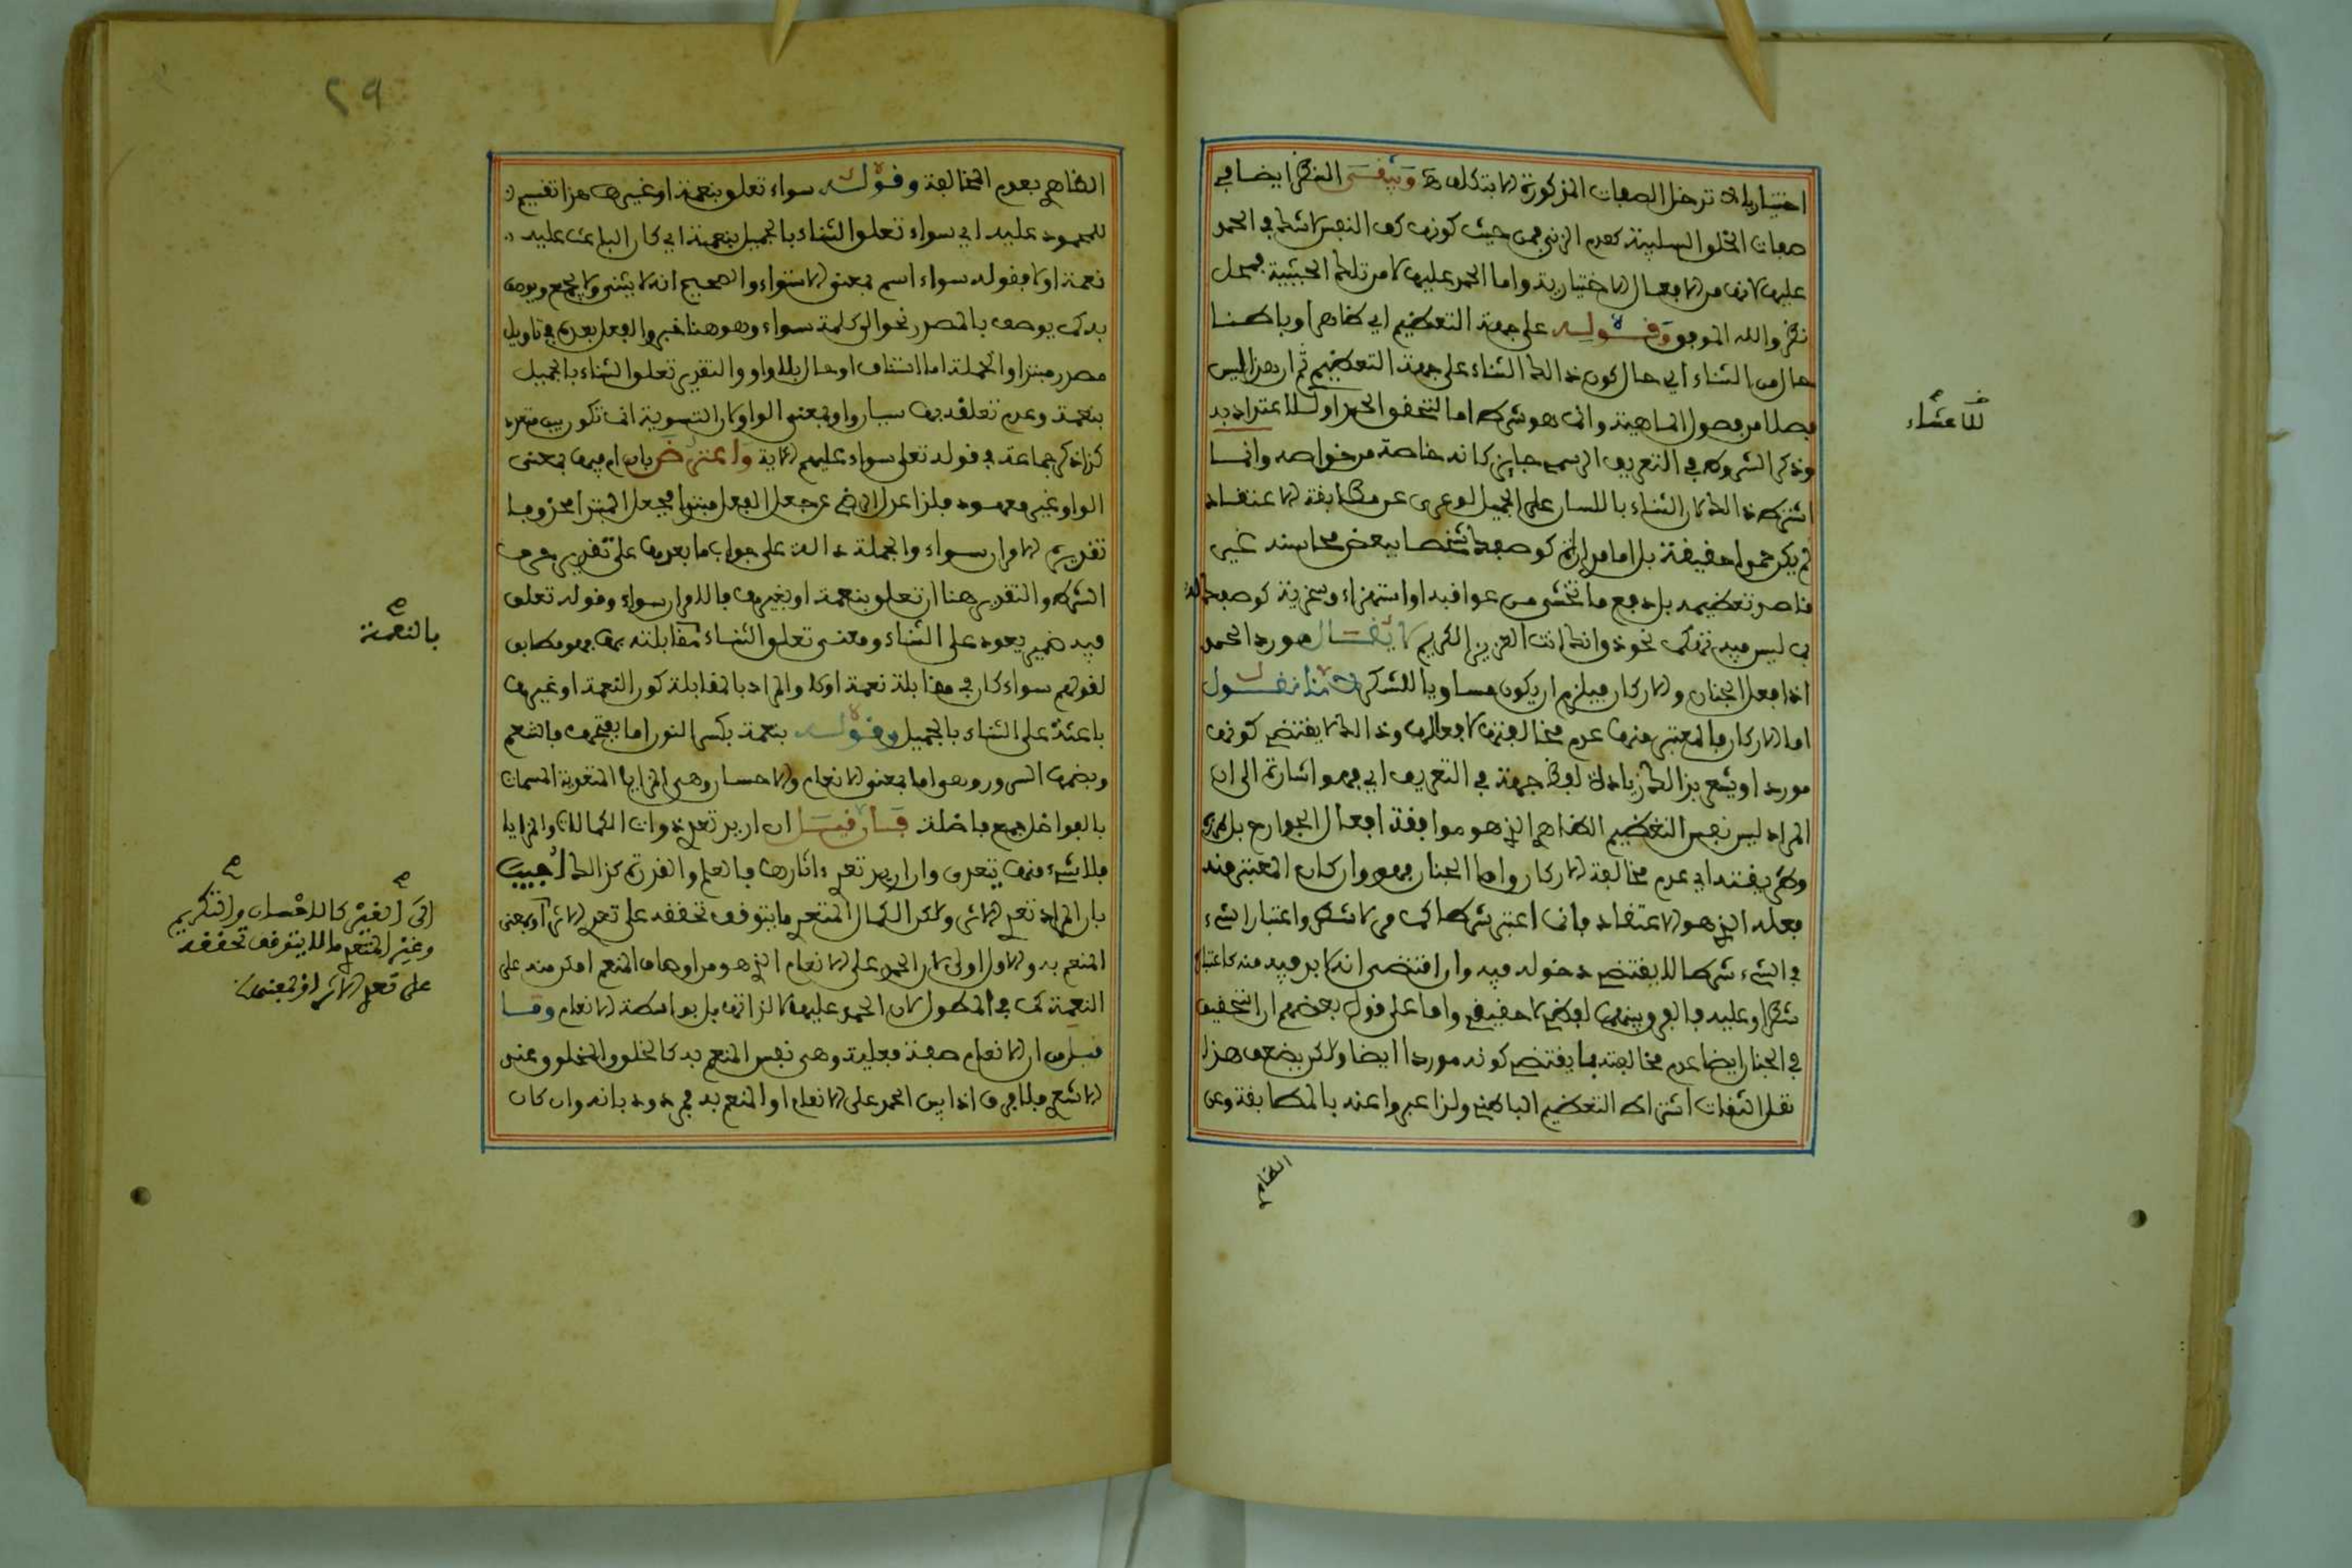 اختياريا لئلا تدخل الصفات المذكورة الا بتكلف ويبقى النظر ايضا في
صفات الخلق السلبية كعدم الزنى فمن حيث كونها كف النفس لا شك في الحمد
عليها لانها من الافعال الاختيارية واما الحمد عليها لا من تلك الحيثية فمحل
نظر والله الموفق وقوله على جهة التعظيم اي ظاهرا وباطنا
حال من الثناء اي حال كون ذالك الثناء على جهة التعظيم ثم ان هذا ليس
فصلا من فصول الماهية وانما هو شرط اما لتحقق الحمد او للاعتداد به
وذكر الشروط في التعريف الرسمي جايز كانه خاصة من خواصه وانما
اشترط ذالك لان الثناء باللسان على الجميل لو عرى عن مطابقة الاعتقاد
لم يكن حمدا حقيقة بل اما مداراة كوصفك شخصا ببعض محاسنه غير
قاصد تعظيمه بل دفع ما تخشى من عواقبه او استهزاء وسخرية كوصفك له
بما ليس فيه تهكما نحو ذق انك انت العزيز الكريم لا يقال مورد الحمد
اذا فعل الجنان والاركان فيلزم ان يكون مساويا للشكر لانا نقول
اما الاركان فالمعتبر منها عدم مخالفتها لا فعالها وذالك لا يقتضي كونها
موردا ويشعر بذالك زيادة لفظ جهة في التعريف اي فهو اشارة الى ان
المراد ليس نفس التعظيم الظاهر الذي هو موافقة افعال الجوارح بل
وطريقته اي عدم مخالفة الاركان واما الجنان فهو وان كان المعتبر منه
فعله الذي هو الاعتقاد فانما اعتبر شرطا كما مر لا شطرا واعتبار الشيء
في الشيء شرطا لا يقتضي دخوله فيه وان اقتضى انه لا بد فيه منه كاعتباره
شطرا وعليه فالفرق بينهما لفظي لا حقيقي واما على قول بعضهم ان التحقيق
في الجنان ايضا عدم مخالفته فلا يقتضي كونه موردا ايضا ولكن يضعف هذا
نقل الثقات اشتراط التعظيم الباطني ولذا عبروا عنه بالمطابقة وعن
الظاهر
للاعتداد
الظاهر بعدم المخالفة وقوله سواء تعلق بنعمة او غيرها هذا تقسيم
للمحمود عليه اي سواء تعلق الثناء بالجميل بنعمة اي كان الباعث عليه
نعمة او لا فقوله سواء اسم بمعنى الاستواء والصحيح انه لا يثنى ولا يجمع ويوصف
به كما يوصف بالمصدر نحو الى كلمة سواء وهو هنا خبر والفعل بعده في تاويل
مصدر مبتدا والجملة اما استئناف او حال بلا واو والتقدير تعلق الثناء بالجميل
بنعمة وعدم تعلقه بها سيان واو بمعنى الواو لان التسوية انما تكون بين متعدد
كذا ذكر جماعة في قوله تعلى سواء عليهم الاية واعترض بان ام فيها بمعنى
الواو غير معهود فلذا عدل الرضي عن جعل الفعل مبتدا فجعل المبتدا محذوفا
تقديره الامران سواء والجملة دالة على جواب ما بعدها على تقدير حرف
الشرط والتقدير هنا ان تعلق بنعمة او بغيرها فالامران سواء وقوله تعلق
فيه ضمير يعود على الثناء ومعنى تعلق الثناء مقابلته بها فهو مطابق
لقولهم سواء كان في مقابلة نعمة او لا والمراد بالمقابلة كون النعمة او غيرها
باعثة على الثناء بالجميل وقوله بنعمة بكسر النون اما بفتحها فالتنعم
وبضمها السرور وهو اما بمعنى الانعام والاحسان وهي المزايا المتعدية المسماة
بالفواضل جمع فاضلة فان قيل ان اريد تعدي ذوات الكمالات والمزايا
فلا شيء منها يتعدى وان اريد تعدي ءاثارها فالعلم والقدرة كذالك اجيب
بان المراد تعدي الاثر ولكن الكمال المتعدي ما يتوقف تحققه على تعدي الاثر او بمعنى
المنعم به والاول اولى لان الحمد على الانعام الذي هو من اوصاف المنعم امكن منه على
النعمة كما في المطول لان الحمد عليها لا لذاتها بل بواسطة الانعام وما
قيل من ان الانعام صفة فعلية وهي نفس المنعم به كالخلق والمخلوق عند
الاشعري فلا فرق اذا بين الحمد على الانعام او المنعم به فمردود بانه وان كان
بالنعمة
الى الغير كالاحسان والتكريم
وغير المتعدي ما لا يتوقف تحققه
على تعدي الاثر او بمعنى
٢٩